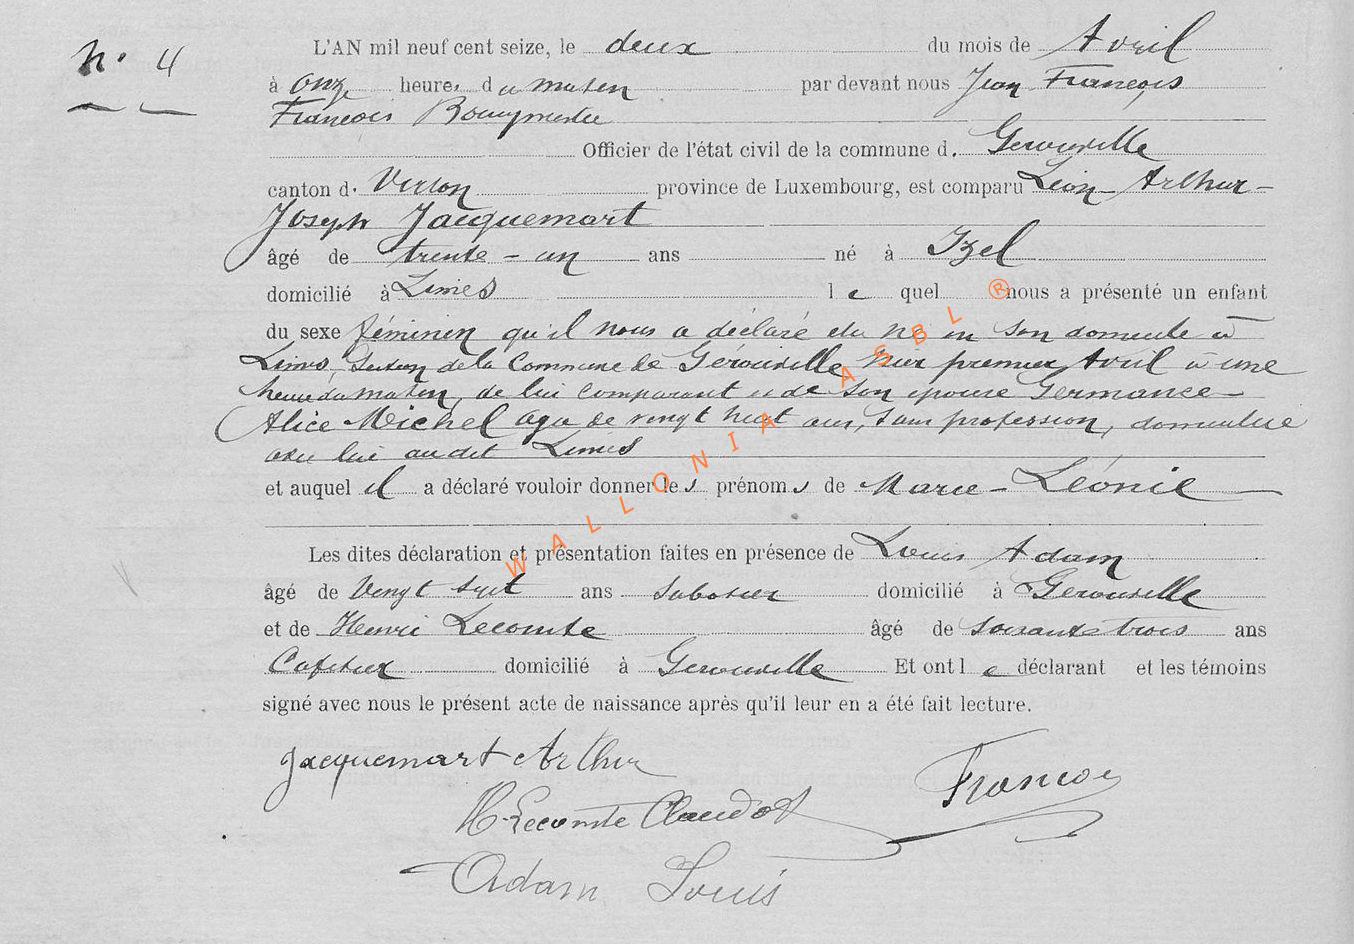 N° 4
L'AN mil neuf cent seize, le deux du mois de Avril
à onze heures du matin par devant nous Jean François
François Bourgmestre
Officier de l'état civil de la commune d. Gerouville
canton d. Virton province de Luxembourg, est comparu Léon Arthur-
Joseph Jacquemart
âgé de trente-un ans né à Izel
domicilié à Limes le quel nous a présenté un enfant
du sexe féminin qu'il nous a déclaré être né en son domicile à
Limes, Section de la Commune de Gérouville hier premier Avril à une
heure du matin, de lui comparant et de son épouse Germance
Alice Michel agée de vingt huit ans, sans profession, domiciliée
avec lui au dit Limes
et auquel il a déclaré vouloir donner les prénoms de Marie-Léonie
Les dites déclaration et présentation faites en présence de Louis Adam
âgé de Vingt sept ans Sabotier domicilié à Gerouville
et de Henri Lecomte âgé de soixante trois ans
Cafetier domicilié à Gerouville Et ont le déclarant et les témoins
signé avec nous le présent acte de naissance après qu'il leur en a été fait lecture.
Jacquemart Arthur
François
H Lecomte Claudot
Adam Louis
WALLONIA ASBL ®